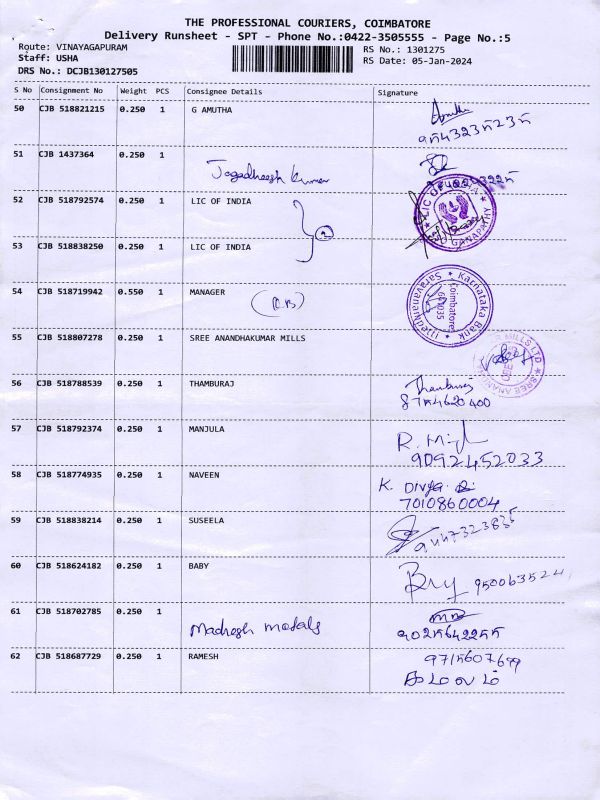 THE PROFESSIONAL COURIERS, COIMBATORE
Delivery Runsheet - SPT - Phone No.:0422-3505555 - Page No.:5
Route: VINAYAGAPURAM RS No.: 1301275
Staff: USHA RS Date: 05-Jan-2024
DRS No.: DCJB130127505
S No Consignment No Weight PCS Consignee Details Signature
50 CJB 518821215 0.250 1 G AMUTHA
51 CJB 1437364 0.250 1
Jagadheesh kumar
52 CJB 518792574 0.250 1 LIC OF INDIA
LIC OF INDIA GANAPATHY
53 CJB 518838250 0.250 1 LIC OF INDIA
54 CJB 518719942 0.550 1 MANAGER
Karnataka Bank Coimbatore 641035
55 CJB 518807278 0.250 1 SREE ANANDHAKUMAR MILLS
56 CJB 518788539 0.250 1 THAMBURAJ
57 CJB 518792374 0.250 1 MANJULA
9092452033
58 CJB 518774935 0.250 1 NAVEEN K. Divya
7010860004
59 CJB 518838214 0.250 1 SUSEELA
60 CJB 518624182 0.250 1 BABY
61 CJB 518702785 0.250 1
Madhesh metals
62 CJB 518687729 0.250 1 RAMESH